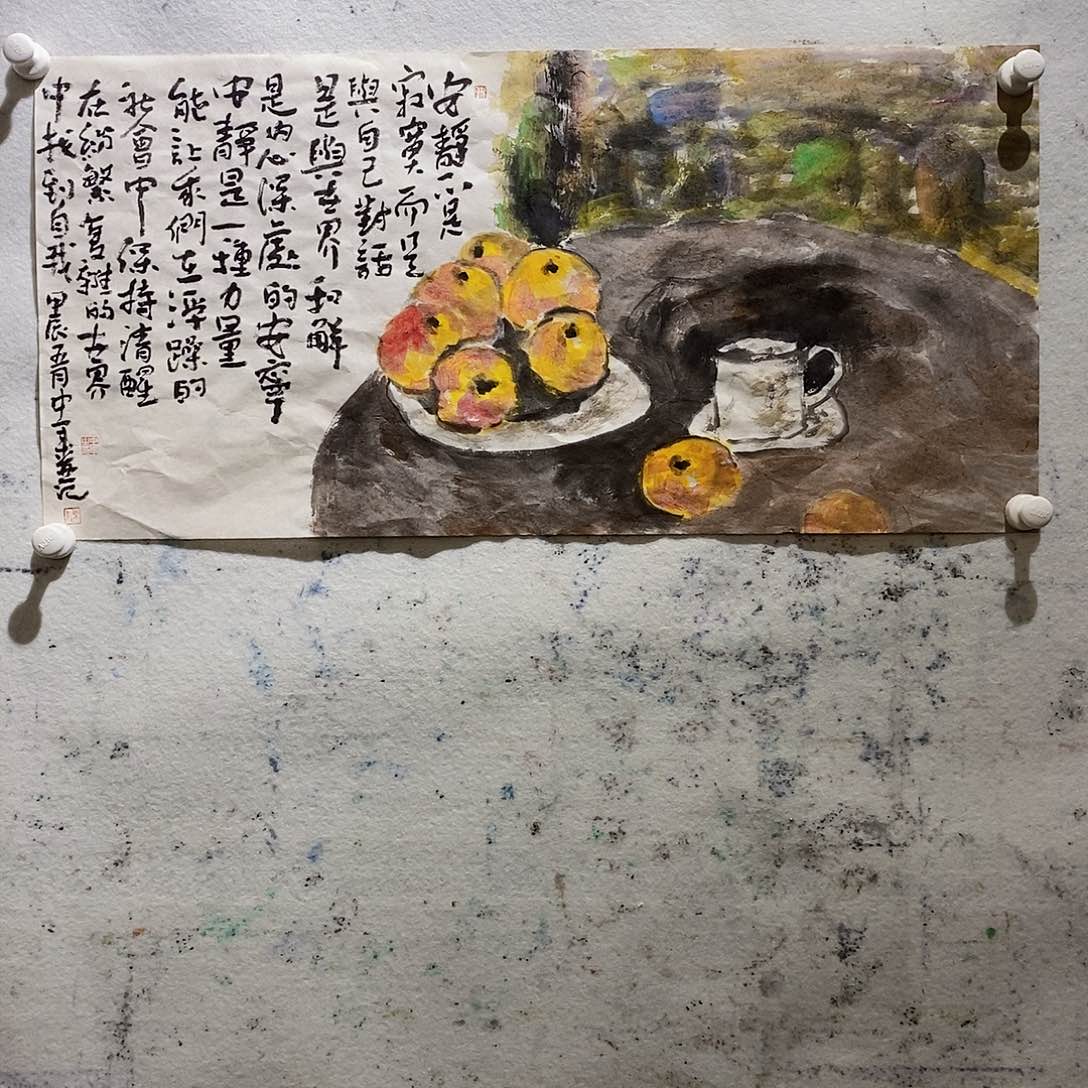 安靜不是
寂寞而是
與自己對話
是與世界和解
是内心深處的安寧
安靜是一種力量
能让我們在浮躁的
社會中保持清醒
在紛繁複雜的世界
中找到自我 甲辰五月中